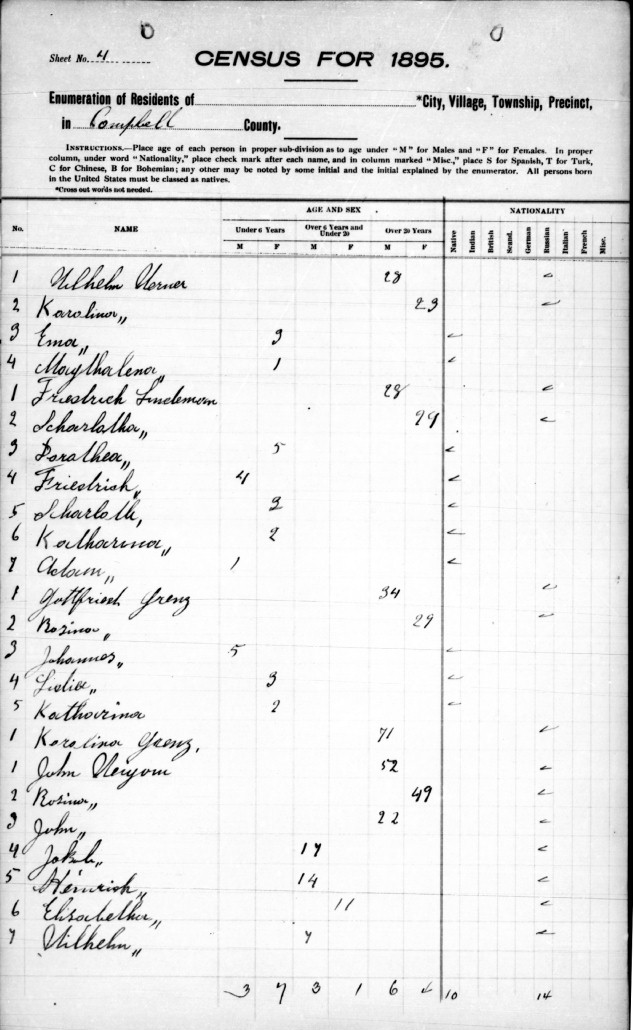 Sheet No. 4
CENSUS FOR 1895.
Enumeration of Residents of *City, Village, Township, Precinct,
in Campbell County.
INSTRUCTIONS.—Place age of each person in proper sub-division as to age under "M" for Males and "F" for Females. In proper
column, under word "Nationality," place check mark after each name, and in column marked "Misc.," place S for Spanish, T for Turk,
C for Chinese, B for Bohemian; any other may be noted by some initial and the initial explained by the enumerator. All persons born
in the United States must be classed as natives.
*Cross out words not needed.
AGE AND SEX NATIONALITY
No. NAME Under 6 Years Over 6 Years and Under 20 Over 20 Years Native Indian British Scand. German Russian Italian French Misc.
M F M F M F
1 Wilhelm Werner 28 ✓
2 Karolina „ 23 ✓
3 Ema „ 3 ✓
4 Magthalena „ 1 ✓
1 Friedrich Lindeman 28 ✓
2 Scharlotha „ 29 ✓
3 Dorathea „ 5 ✓
4 Friedrich „ 4 ✓
5 Scharloth „ 3 ✓
6 Katharina „ 2 ✓
7 Adam „ 1 ✓
1 Gottfried Grenz 34 ✓
2 Rosina „ 29 ✓
3 Johannes „ 5 ✓
4 Lidia „ 3 ✓
5 Katharina 2 ✓
1 Karolina Grenz, 71 ✓
1 John 52 ✓
2 Rosina „ 49 ✓
3 John „ 22 ✓
4 Jakob „ 17 ✓
5 Heinrich „ 14 ✓
6 Elisabetha „ 11 ✓
7 Wilhelm „ 7 ✓
3 7 3 1 6 4 10 14